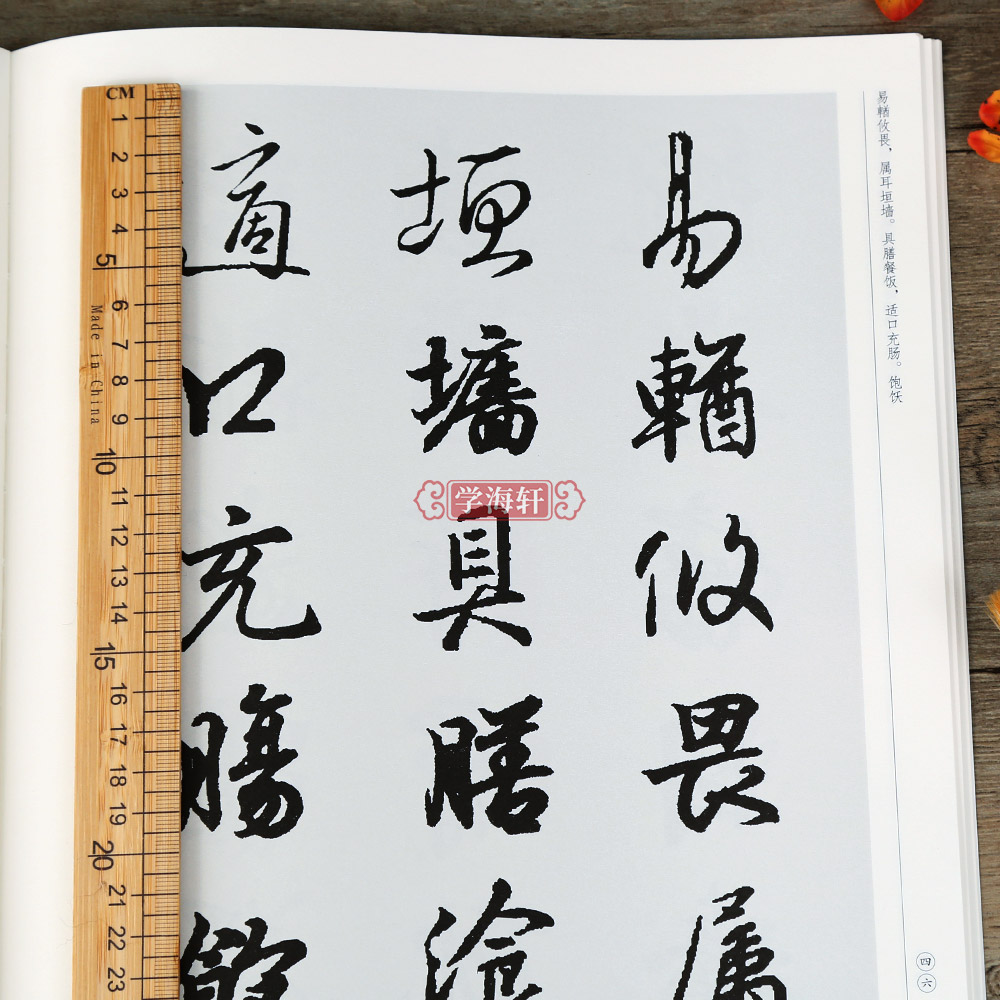 易輶攸畏属
垣墻具膳飡
適口充腸飽
易輶攸畏，属耳垣墙。具膳餐饭，适口充肠。饱饫
四六
学海轩
CM
1
2
3
4
5
6
7
8
9
10
11
12
13
14
15
16
17
18
19
20
21
22
23
Made in China